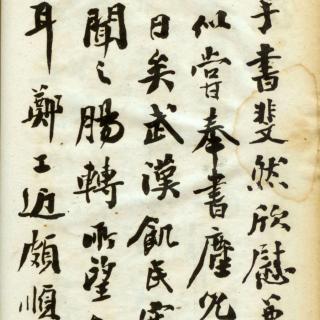 手書斐然欣慰
似嘗奉書麾兄
日矣武漢飢民
聞之腸轉所望
耳鄭工近頗順